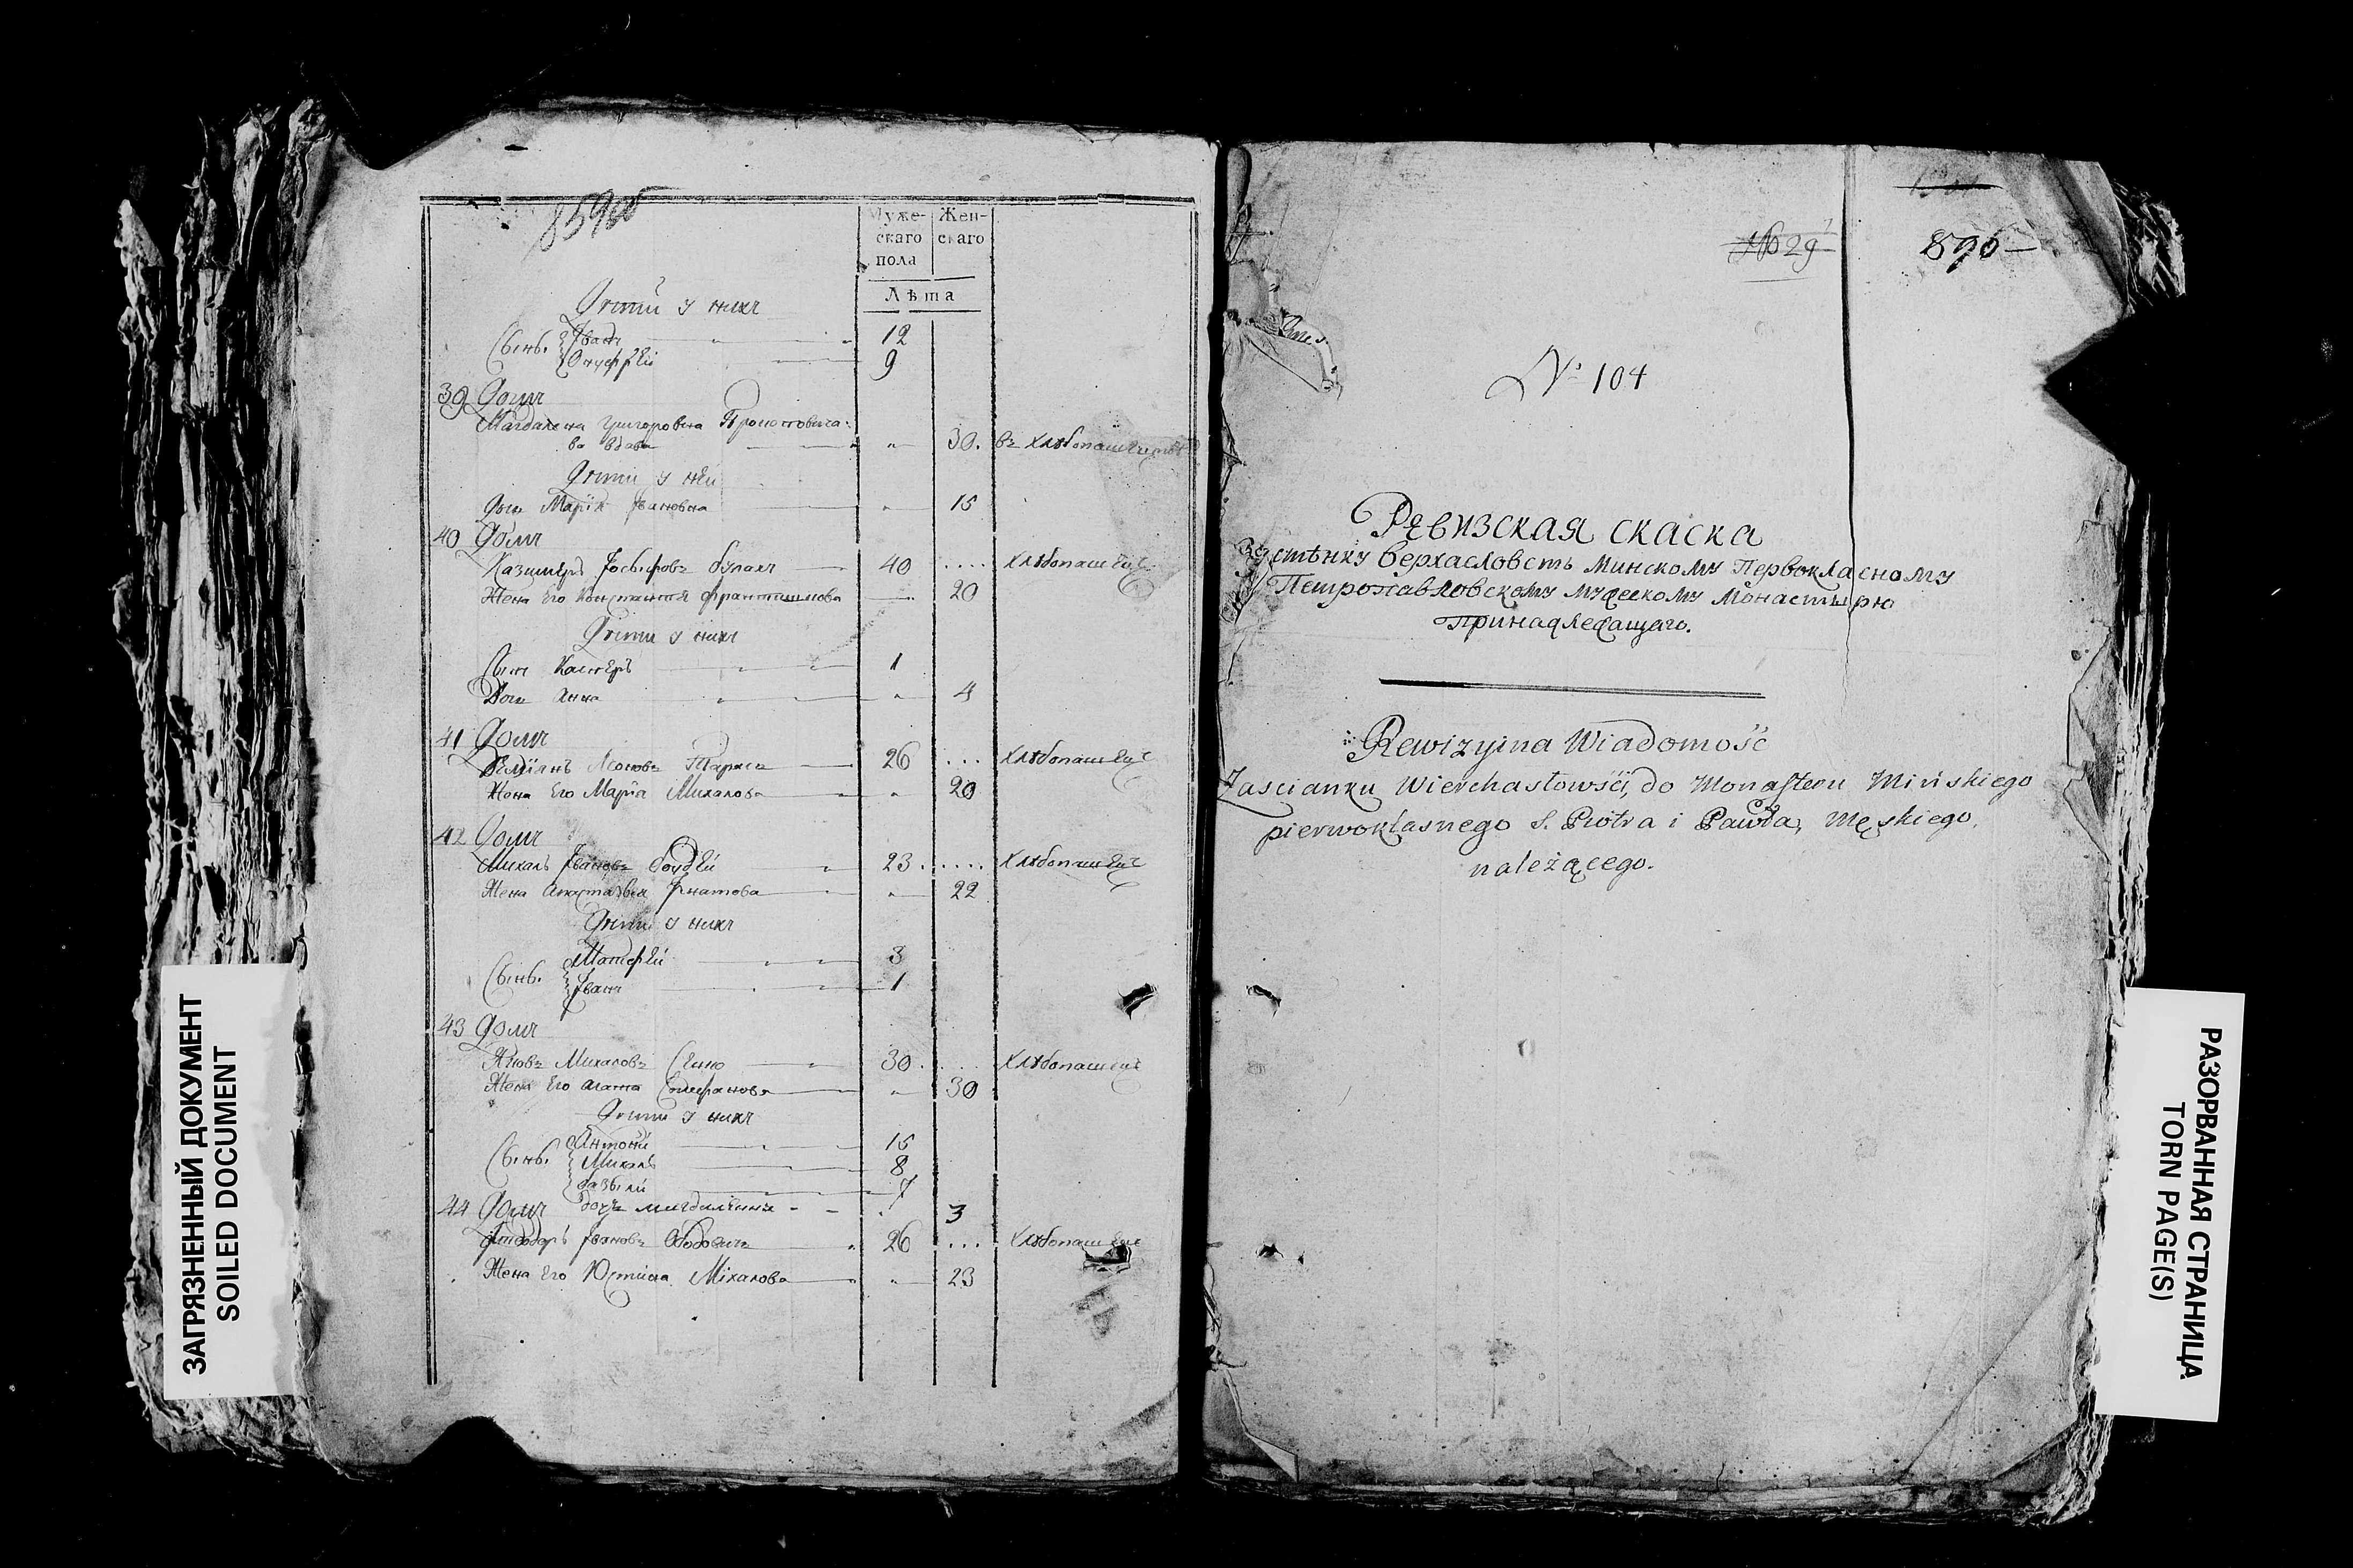 859об
Муже-
скаго
пола
Жен-
скаго
Лѣта
Дѣти у нихъ
Сынъ. Иванъ 12
Онуфрей 9
39 Домъ
Магдалена Григоровна
ва вдова 30. въ хлѣбопашествѣ
Дѣти у ней
Дочь Марія Ивановна 15
40 Домъ
Казимеръ Іосыфовъ Булахъ 40 .... Хлѣбопашецъ
Жена Его Констанція Францишкова 20
Дѣти у нихъ
Сынъ Касперъ 1
Дочь Анна 4
41 Домъ
Леоновъ Тарас 26 ... Хлѣбопашецъ
Жена Его Марія Михалова 20
42 Домъ
Михалъ Ивановъ 23. .... Хлѣбопашецъ
Жена Анастазія Игнатова 22
Дѣти у нихъ
Сынъ. Матефей 3
Иванъ 1
43 Домъ
Яковъ Михаловъ 30. ... Хлѣбопашецъ
Жена Его Агата Стефанова 30
Дѣти у нихъ
Сынъ. Антоній 15
Михалъ 8
Базылій 7
44 Домъ дочъ 3
Ивановъ 26 ... Хлѣбопашецъ
Жена Его Юстина Міхалова 23
№ 29
896
№ 104
Ревизская скаска
Застѣнку Верхасловсть Минскому Первокласному
Петропавловскому мужескому Монастырю
принадлежащаго.
Rewizyina Wiadomość
Zascianku Wierchastowści, do Monasteru Mińskiego
pierwoklasnego S. Piotra i Pawła, Męskiego,
należącego.
ЗАГРЯЗНЕННЫЙ ДОКУМЕНТ
SOILED DOCUMENT
РАЗОРВАННАЯ СТРАНИЦА
TORN PAGE(S)